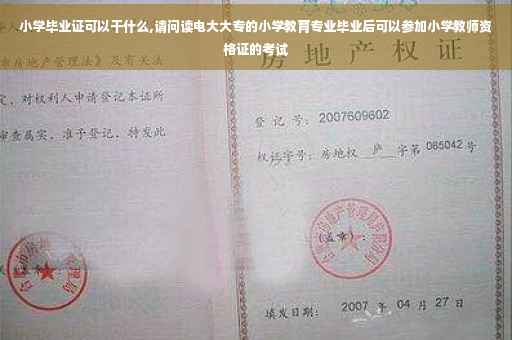 小学毕业证可以干什么,请问读电大大专的小学教育专业毕业后可以参加小学教师资
格证的考试
房地产权
市房地产管理法》及有关法
定，对权利人申请登记本证所
审查属实，准予登记，特发此
登记号：2007609602
权证字号：房地权 庐 字第 085042 号
(盖章)：
填发日期： 2007 年 04 月 27 日